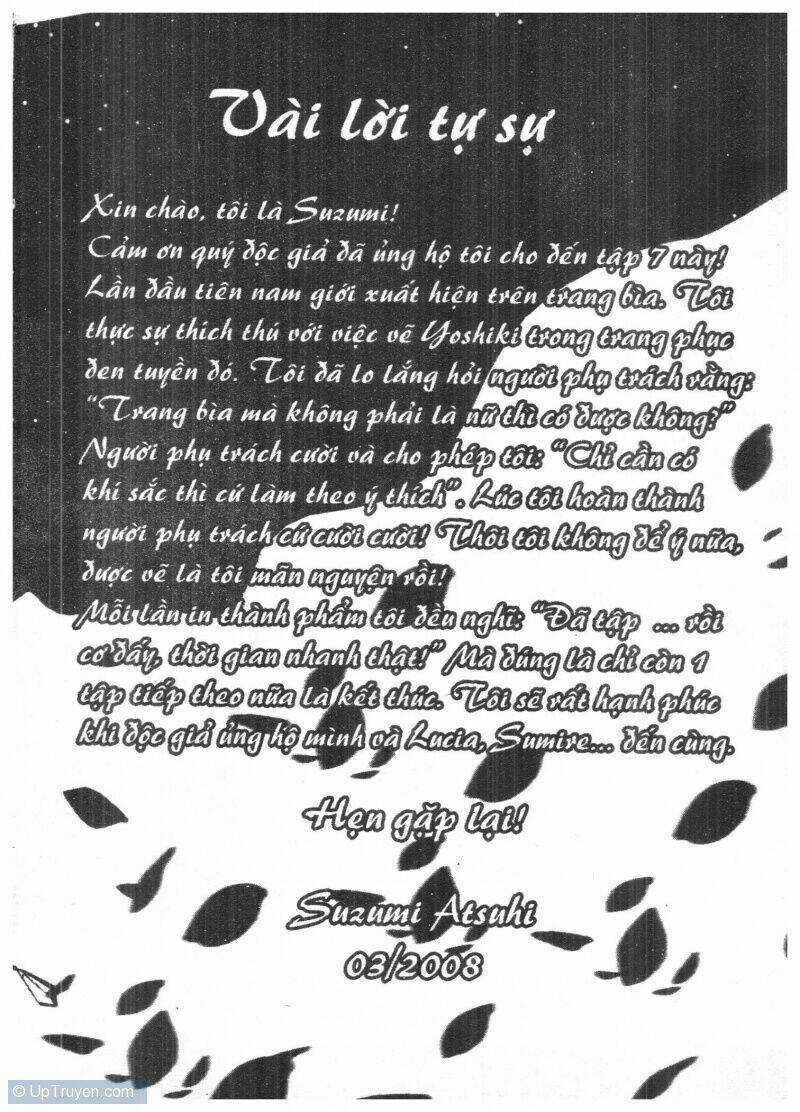 Vài lời tự sự
Xin chào, tôi là Suzumi!
Cảm ơn quý độc giả đã ủng hộ tôi cho đến tập 7 này!
Lần đầu tiên nam giới xuất hiện trên trang bìa. Tôi
thực sự thích thú với việc vẽ Yoshiki trong trang phục
đen tuyền đó. Tôi đã lo lắng hỏi người phụ trách rằng:
“Trang bìa mà không phải là nữ thì có được không?”
Người phụ trách cười và cho phép tôi: “Chỉ cần có
khí sắc thì cứ làm theo ý thích”. Lúc tôi hoàn thành
người phụ trách cứ cười cười! Thôi tôi không để ý nữa,
được vẽ là tôi mãn nguyện rồi!
Mỗi lần in thành phẩm tôi đều nghĩ: “Đã tập ... rồi
cơ đấy, thời gian nhanh thật!” Mà đúng là chỉ còn 1
tập tiếp theo nữa là kết thúc. Tôi sẽ rất hạnh phúc
khi độc giả ủng hộ mình và Lucia, Sumire... đến cùng.
Hẹn gặp lại!
Suzumi Atsuhi
03/2008
© UpTruyen.com